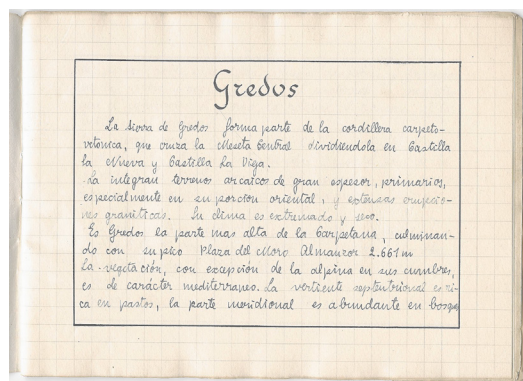 Gredos
La sierra de Gredos forma parte de la cordillera carpeto-
vetónica, que cruza la Meseta Central dividiendola en Castilla
la Nueva y Castilla La Vieja.
La integran terrenos arcaicos de gran espesor, primarios,
especialmente en su porcion oriental, y extensas erupcio-
nes graniticas. Su clima es extremado y seco.
Es Gredos la parte mas alta de la Carpetana, culminan-
do con su pico Plaza del Moro Almanzor 2.661 m
La vegetación, con excepción de la alpina en sus cumbres,
es de carácter mediterraneo. La vertiente septentrional es ri-
ca en pastos, la parte meridional es abundante en bosques